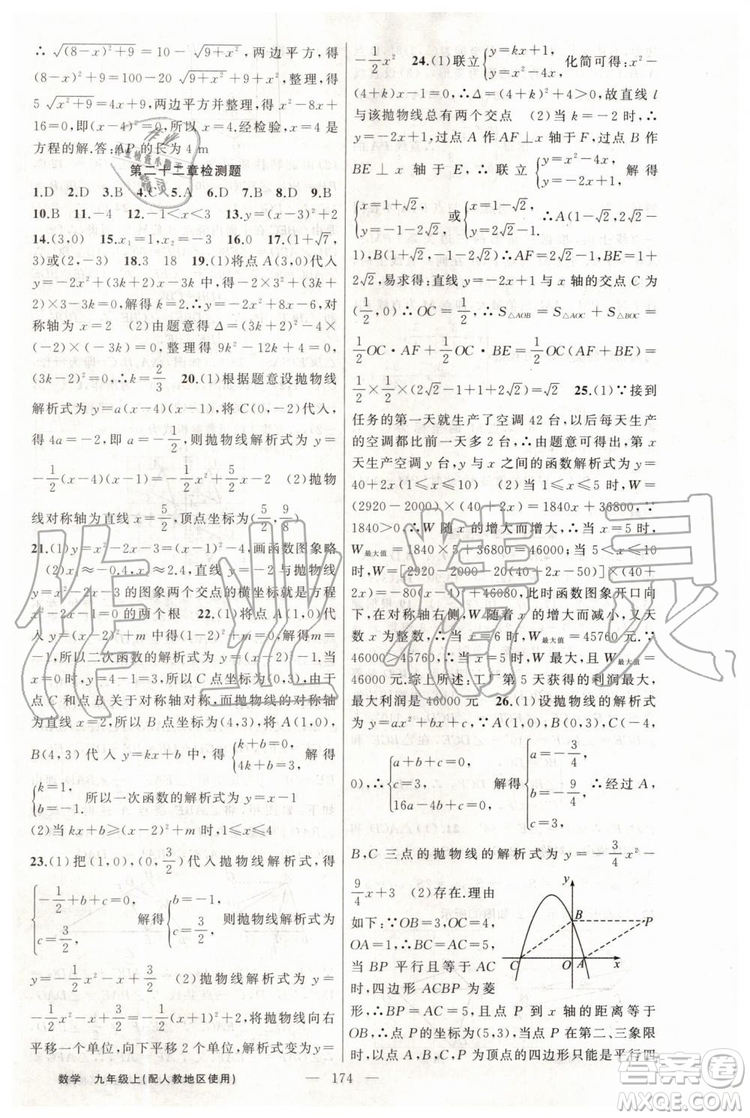 ∴ √((8-x)²+9)=10-√(9+x²),两边平方,得
(8-x)²+9=100+9+x²-20√(9+x²),整理,得
5√(x²+9)=4x+,两边平方并整理,得 x²-8x+
16=0,即(x-4)²=0,所以 x=4.经检验,x=4 是
方程的解.答:AP的长为 4 m
第二十二章检测题
1.D 2.D 3.B 4.C 5.A 6.D 7.D 8.D 9.B
10.B 11.-4 12.-1<x<3 13.y=(x-3)²+2
14.(3,0) 15.x₁=-1,x₂=3 16.0 17.(1+√7,
3)或(2,-3) 18.3 18 19.(1)将点 A(3,0)代入
y=-2x²+(3k+2)x-3k 中,得-2×3²+(3k+
2)×3-3k=0,解得 k=2,∴y=-2x²+8x-6,对
称轴为 x=2 (2)由题意得 Δ=(3k+2)²-4×
(-2)×(-3k)=0,整理得 9k²-12k+4=0,∴
(3k-2)²=0,∴k=2/3 20.(1)根据题意设抛物线
解析式为 y=a(x-4)(x-1),将点 C(0,-2)代入,
得 4a=-2,即 a=-1/2,则抛物线解析式为 y=
-1/2(x-4)(x-1)=-1/2x²+5/2x-2 (2)抛物
线对称轴为直线 x=5/2,顶点坐标为(5/2,9/8)
21.(1)y=x²-2x-1=(x-1)²-2,画函数图象略
(2)x≈-0.4,x≈2.4 (3)直线 y=x+1 与抛物
线 y=x²-x 的图象两个交点的横坐标就是方程
x²-2x-1=0 的两个根 22.(1)将点 A(1,0)代
入 y=(x-2)²+m 得(1-2)²+m=0,解得 m=
-1,所以二次函数的解析式为 y=(x-2)²-1.当
x=0 时,y=4-1=3,所以 C 点坐标为(0,3),由于
点 C 和点 B 关于对称轴对称,而抛物线的对称轴为
直线 x=2,所以 B 点坐标为(4,3),将 A(1,0),
B(4,3)代入 y=kx+b 得{k+b=0,4k+b=3,解得
{k=1,b=-1.所以一次函数的解析式为 y=x-1
(2)当 kx+b≥(x-2)²+m 时,1≤x≤4
23.(1)把(1,0),(0,3/2)代入抛物线解析式,得
{-1/2+b+c=0,c=3/2,解得{b=-1,c=3/2,则抛物线解析式为
y=-1/2x²-x+3/2 (2)抛物线解析式为 y=
-1/2x²-x+3/2=-1/2(x+1)²+2,将抛物线向右
平移一个单位,向下平移 2 个单位,解析式变为 y=
-1/2x² 24.(1)联立{y=kx+1,y=x²-4x,化简可得:x²-
(4+k)x-1=0,∴Δ=(4+k)²+4>0,故直线 l
与该抛物线总有两个交点 (2)当 k=-2 时,∴
y=-2x+1,过点 A 作 AF⊥x 轴于 F,过点 B 作
BE⊥x 轴于 E,∴联立{y=x²-4x,y=-2x+1,解得
{x=1+√2,y=-1-2√2,或{x=1-√2,y=-1+2√2.∴A(1-√2,2√2-
1),B(1+√2,-1-2√2)∴AF=2√2-1,BE=1+
2√2,易求得:直线 y=-2x+1 与 x 轴的交点 C 为
(1/2,0)∴OC=1/2,∴S△AOB=S△AOC+S△BOC=
1/2OC·AF+1/2OC·BE=1/2OC(AF+BE)=
1/2×1/2×(2√2-1+1+2√2)=√2 25.(1)∵接到
任务的第一天就生产了空调 42 台,以后每天生产
的空调都比前一天多 2 台,∴由题意可得出,第 x
天生产空调 y 台,y 与 x 之间的函数解析式为 y=
40+2x(1≤x≤10) (2)当 1≤x≤5 时,W=
(2920-2000)×(40+2x)=1840x+36800,∵
1840>0,∴W 随 x 的增大而增大,∴当 x=5 时,
W最大值=1840×5+36800=46000;当 5<x≤10
时,W=[2920-2000-20(40+2x-50)]×(40+
2x)=-80(x-4)²+46080,此时函数图象开口向
下,在对称轴右侧,W 随着 x 的增大而减小,又天
数 x 为整数,∴当 x=6 时,W最大值=45760 元.∵
46000>45760,∴当 x=5 时,W 最大,且 W最大值=
46000 元.综上所述:工厂第 5 天获得的利润最大,
最大利润是 46000 元 26.(1)设抛物线的解析式
为 y=ax²+bx+c,∵A(1,0),B(0,3),C(-4,0),
∴{a+b+c=0,c=3,16a-4b+c=0,解得{a=-3/4,b=-9/4,c=3,∴经过 A,
B,C 三点的抛物线的解析式为 y=-3/4x²-
9/4x+3 (2)存在.理由
如下:∵OB=3,OC=4,
OA=1,∴BC=AC=5,
当 BP 平行且等于 AC
时,四边形 ACBP 为菱
形,∴BP=AC=5,且点 P 到 x 轴的距离等于
OB,∴点 P 的坐标为(5,3),当点 P 在第二、三象限
时,以点 A,B,C,P 为顶点的四边形只能是平行四
y
B
P
C
O
A
x
数学 九年级上(配人教地区使用)
— 174 —
作业精灵